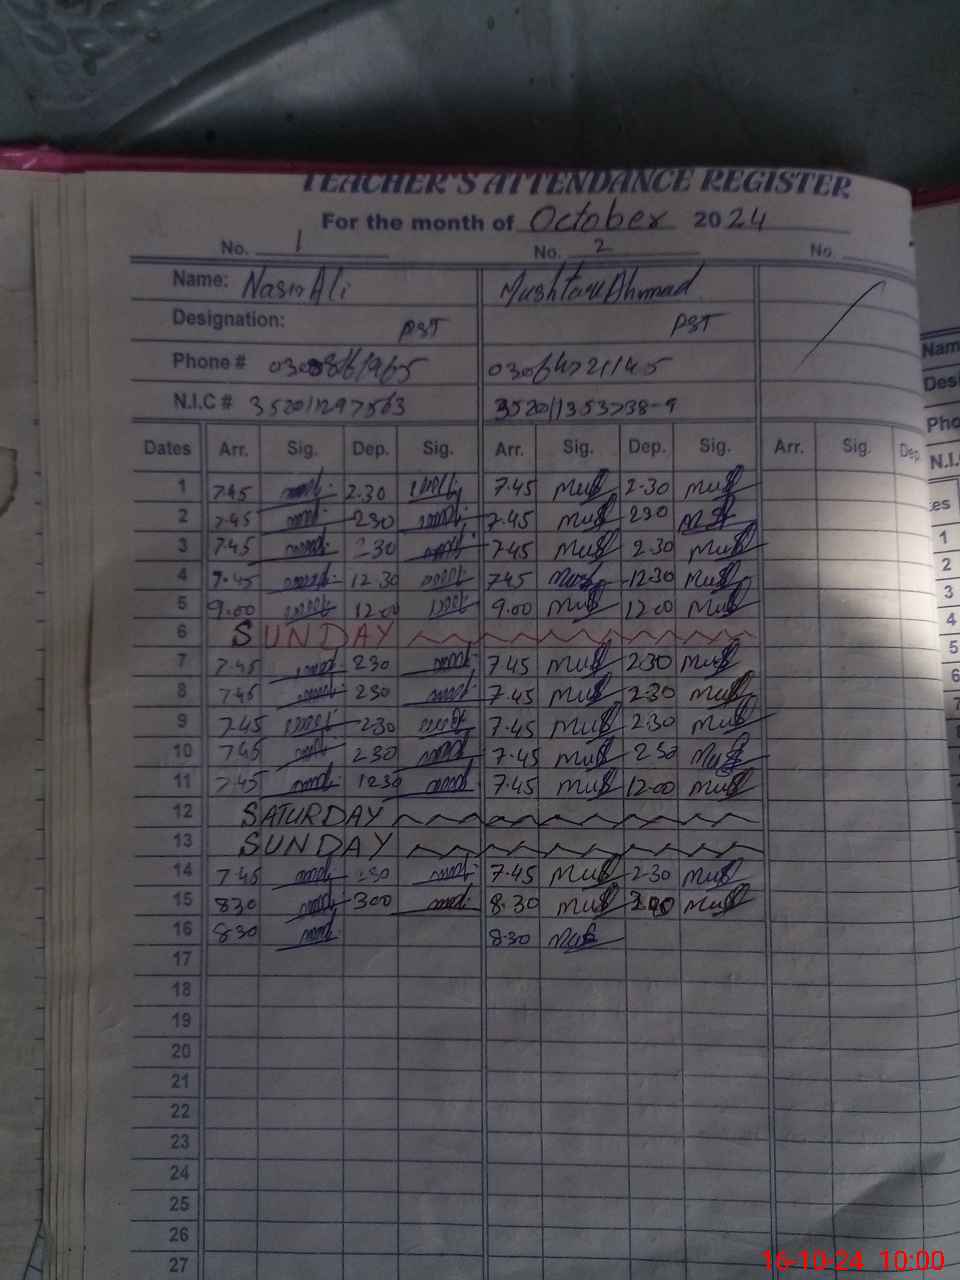 TEACHER'S ATTENDANCE REGISTER
For the month of October 2024
No. 1 No. 2 No.
Name: Nasir Ali Mushtaq Ahmad
Designation: PST PST
Phone # 03064721145
N.I.C # 352011297563 352011353738-9
Dates Arr. Sig. Dep. Sig. Arr. Sig. Dep. Sig. Arr. Sig. Dep.
1 7.45 2.30 7.45 2-30
2 7.45 230 7.45 230
3 7.45 230 745 2.30
4 7.45 12.30 745 12-30
5 9.00 12.00 9.00 12.00
6 SUNDAY
7 7.45 230 745 2.30
8 7.45 230 7.45 2.30
9 7.45 2.30 7.45 2.30
10 7.45 2.30 7.45 2 30
11 7.45 1230 7.45 12.00
12 SATURDAY
13 SUNDAY
14 7.45 230 7.45 2-30
15 830 300 8.30
16 8.30 8.30
17
18
19
20
21
22
23
24
25
26
27
Nam
Des
Pho
N.I.
es
1
2
3
4
5
6
7
16-10-24 10:00